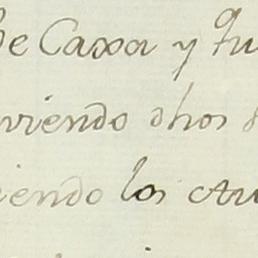 de Caxa y qu
viendo dhos
iendo los au